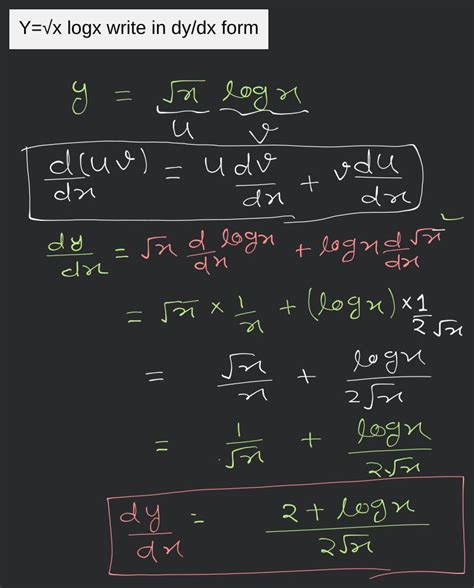 Y=√x logx write in dy/dx form
y = √x log x
u v
d(uv)/dx = u dv/dx + v du/dx
dy/dx = √x d/dx log x + log x d/dx √x
= √x × 1/x + (log x) × 1/2√x
= √x/x + log x/2√x
= 1/√x + log x/2√x
dy/dx = 2 + log x/2√x